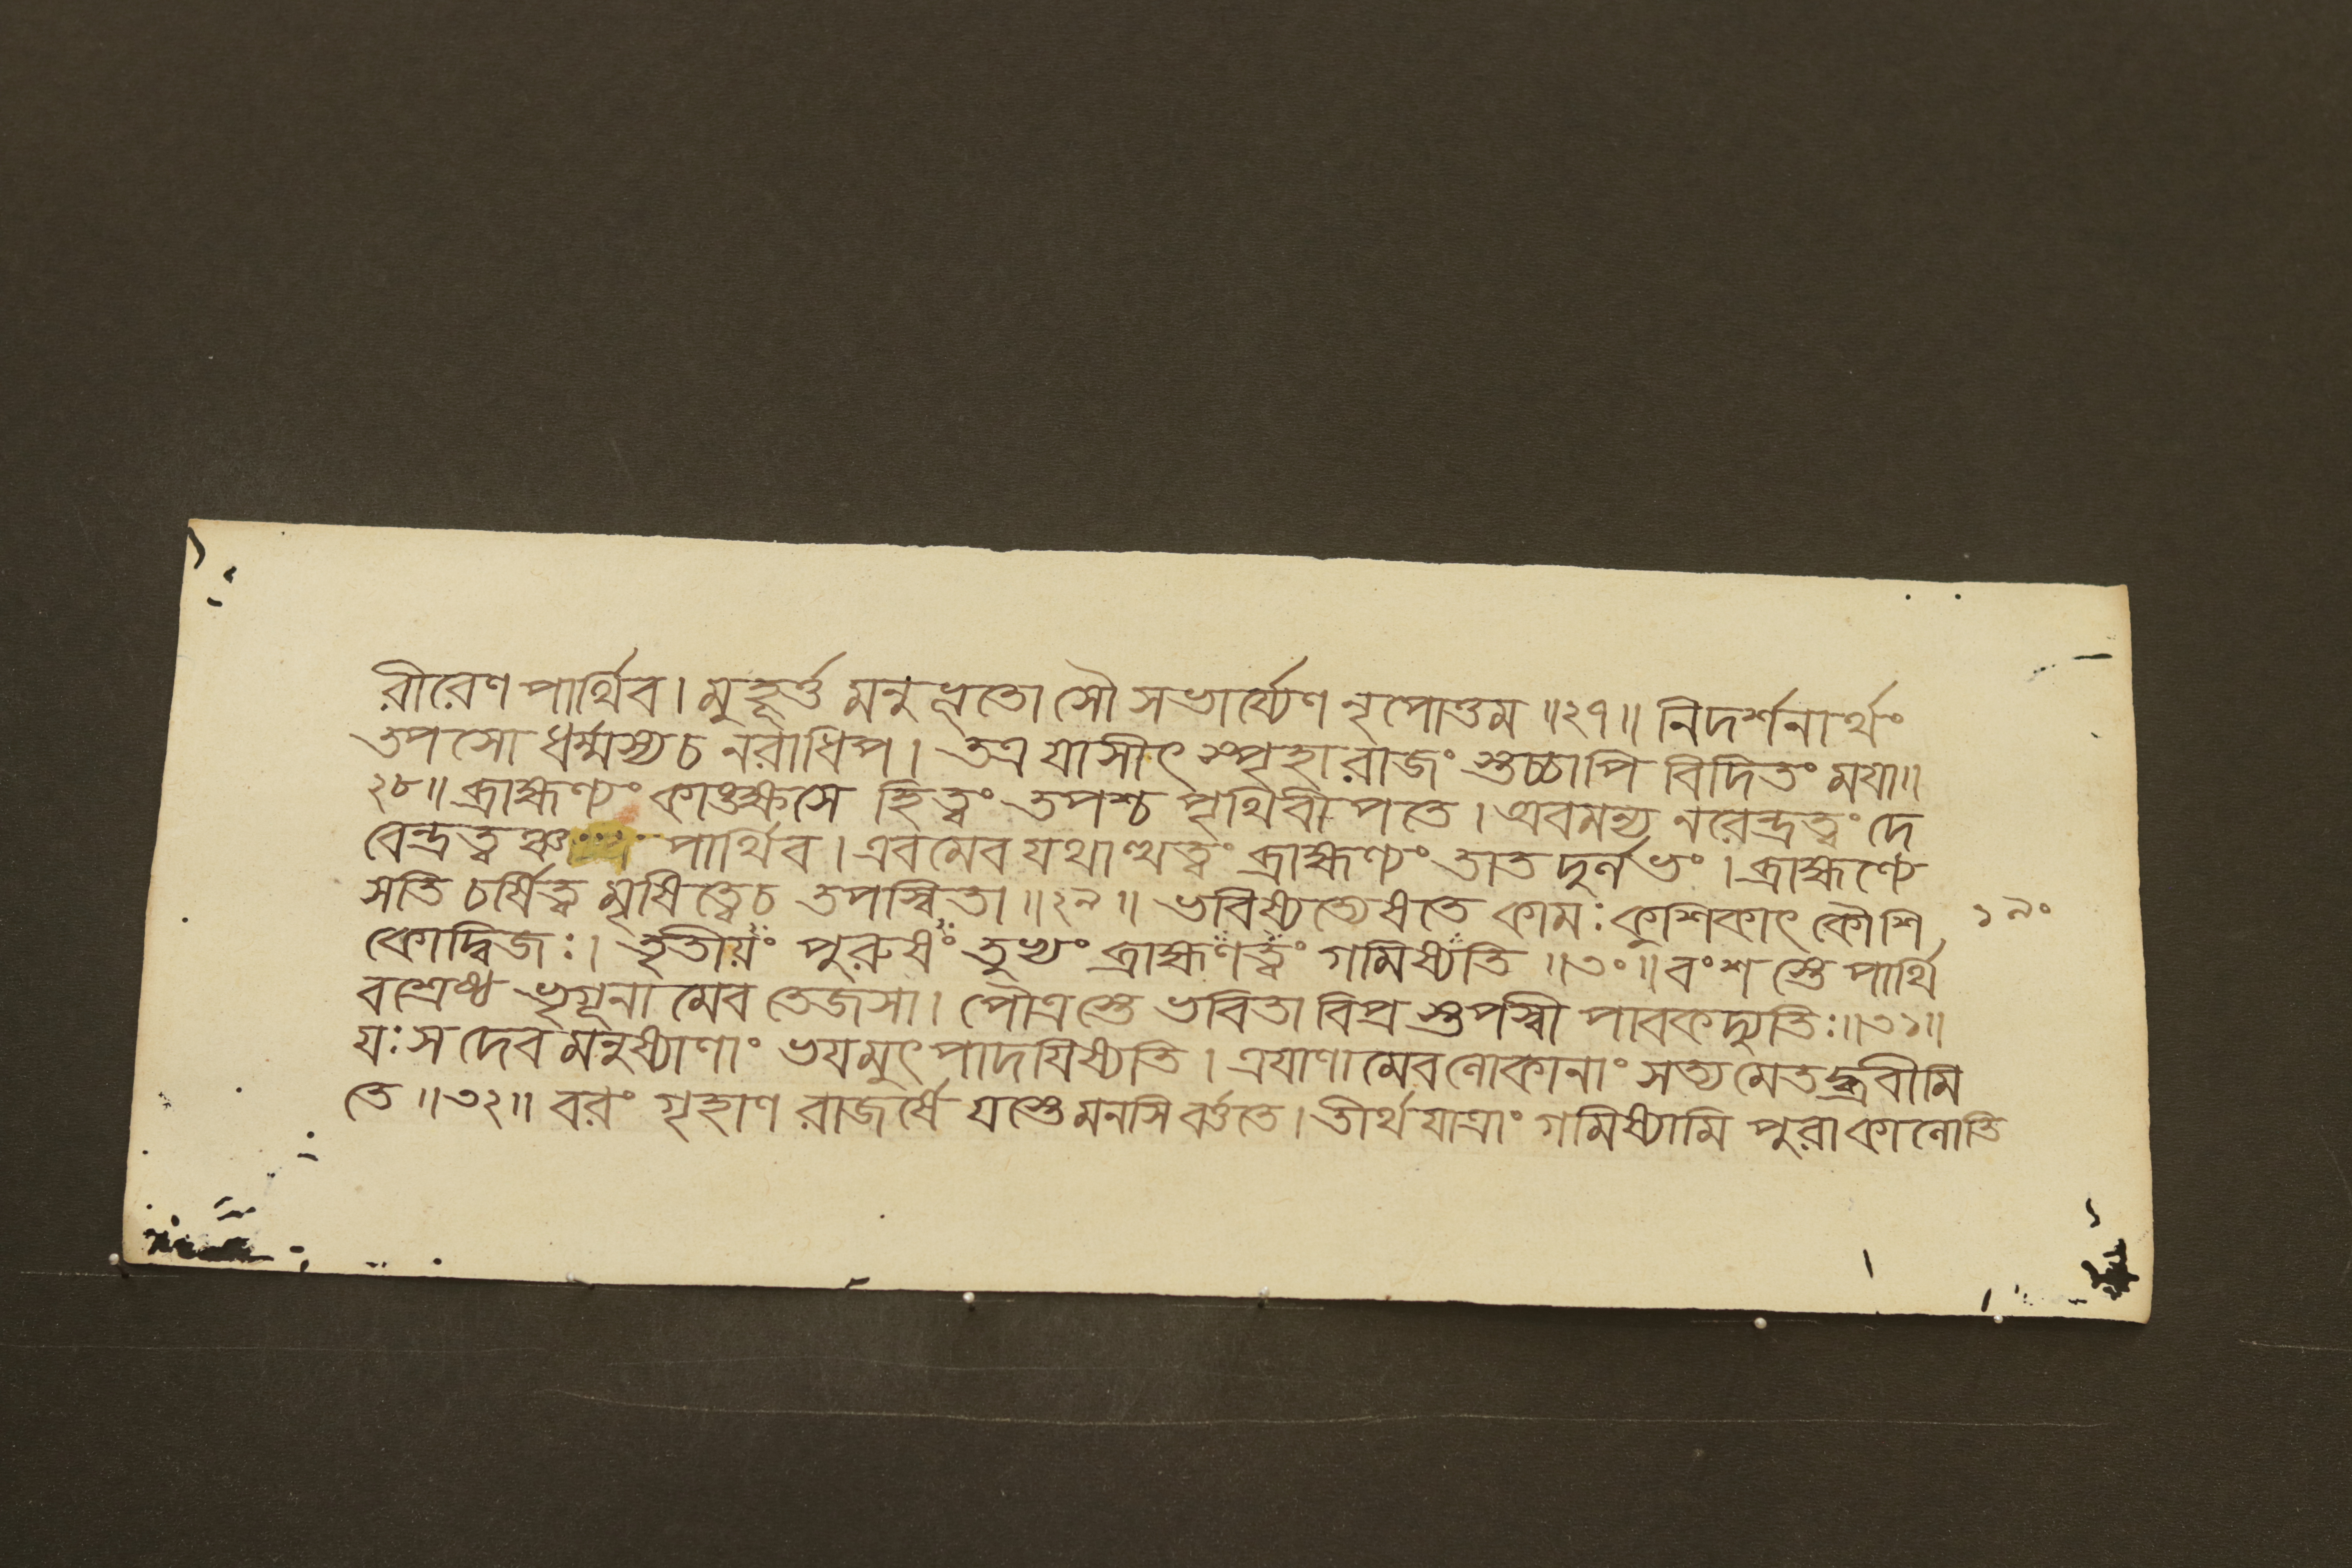 রীরেণ পার্থিব। মুহূর্ত্ত মনুভূতো সৌ সভার্য্যেণ নৃপোত্তম॥২৭॥ নিদর্শনার্থং
তপসো ধর্ম্মস্য চ নরাধিপ। তত্র যাসীৎ স্পৃহা রাজং স্তচ্চাপি বিদিতং ময়া॥
২৮॥ ব্রাহ্মণ্যং কাঙ্ক্ষসে হিত্বং তপশ্চ পৃথিবীপতে। অবমন্য নরেন্দ্রত্বং দে
বেন্দ্রত্বঞ্চ পার্থিব। এবমেব যথাত্থত্বং ব্রাহ্মণ্যং তাত দুর্লভং। ব্রাহ্মণ্যে
সতি চর্ষিত্ব মৃষিত্বেচ তপস্বিতা॥২৯॥ ভবিষ্যত্যেষতে কামঃ কুশিকাৎ কৌশি ১৯০
কোদ্বিজঃ। তৃতীয়ং পুরুষং তুভ্যং ব্রাহ্মণত্বং গমিষ্যতি॥৩০॥ বংশ স্তে পার্থি
বশ্রেষ্ঠ ভৃগূনা মেব তেজসা। পৌত্রস্তে ভবিতা বিপ্র স্তপস্বী পাবকদ্যুতিঃ॥৩১॥
যঃ স দেব মনুষ্যাণাং ভয়মুৎপাদয়িষ্যতি। ত্রয়াণামেবলোকানাং সত্য মেতদ্ব্রবীমি
তে॥৩২॥ বরং গৃহাণ রাজর্ষে যস্তে মনসি বর্ত্ততে। তীর্থযাত্রাং গমিষ্যামি পুরাকালোতি